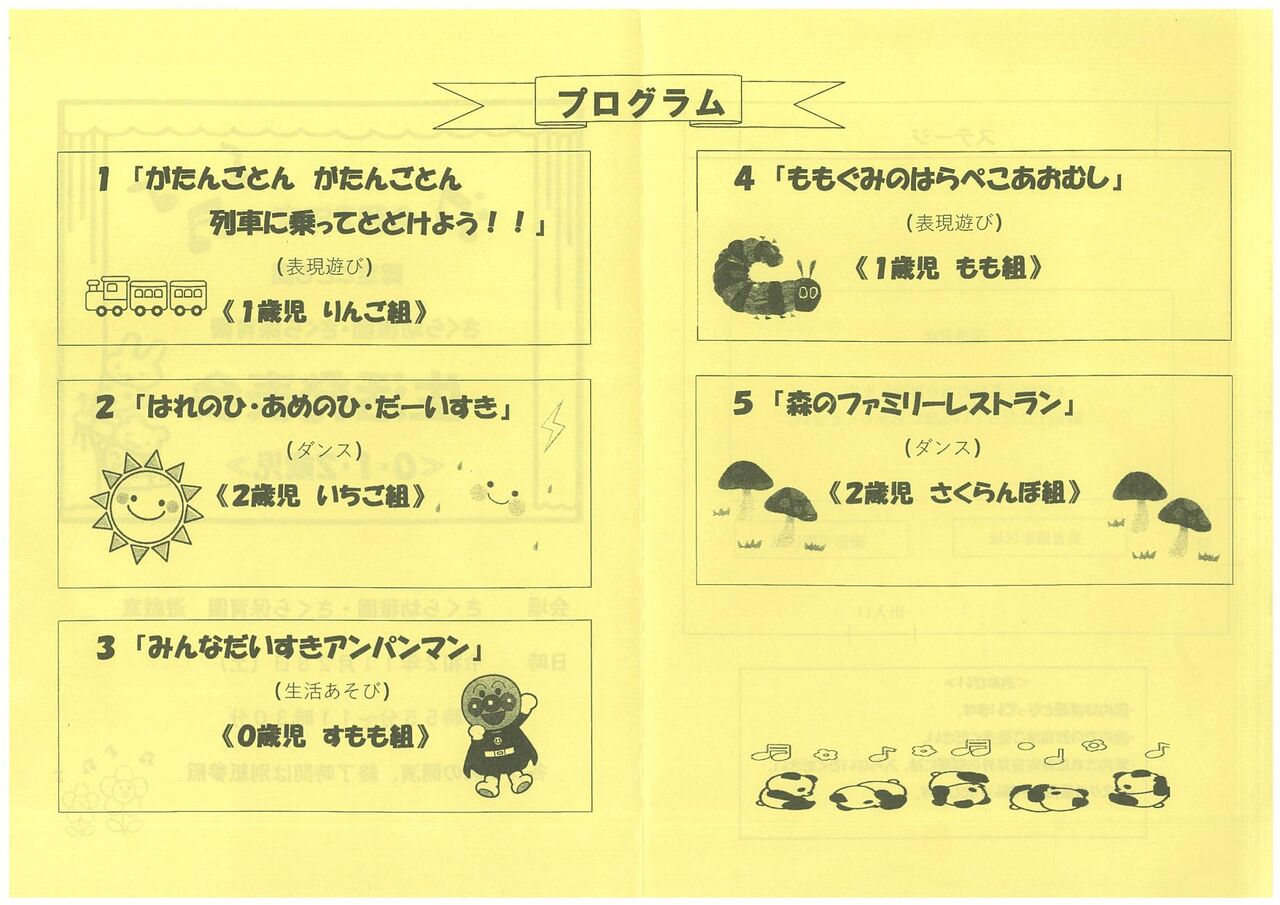 プログラム
1 「がたんごとん がたんごとん
列車に乗ってとどけよう！！」
(表現遊び)
《1歳児 りんご組》
2 「はれのひ・あめのひ・だーいすき」
(ダンス)
《2歳児 いちご組》
3 「みんなだいすきアンパンマン」
(生活あそび)
《0歳児 すもも組》
4 「ももぐみのはらぺこあおむし」
(表現遊び)
《1歳児 もも組》
5 「森のファミリーレストラン」
(ダンス)
《2歳児 さくらんぼ組》